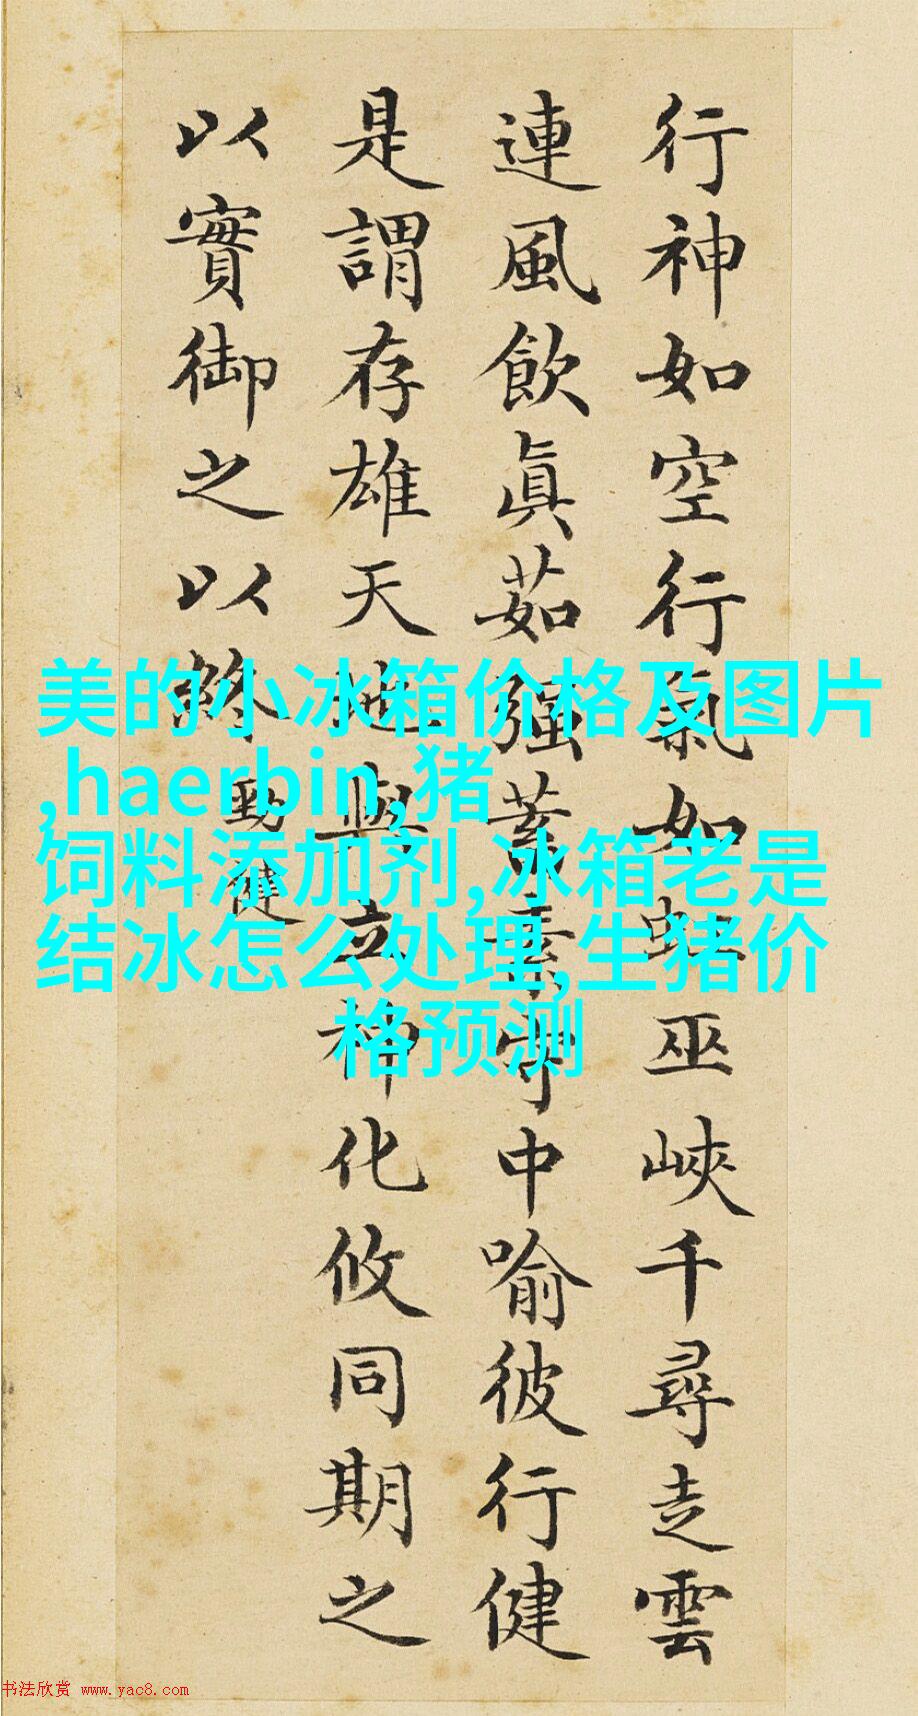 行神如空行氣如虹巫峽千尋走雲
連風飲眞茹强蓄素守中喻彼行健
是謂存雄天地與立神化攸同期之
以實御之以終
勁健
美的小冰箱价格及图片
,haerbin,猪
饲料添加剂,冰箱老是
结冰怎么处理,生猪价
格预测
书法欣赏 www.yac8.com